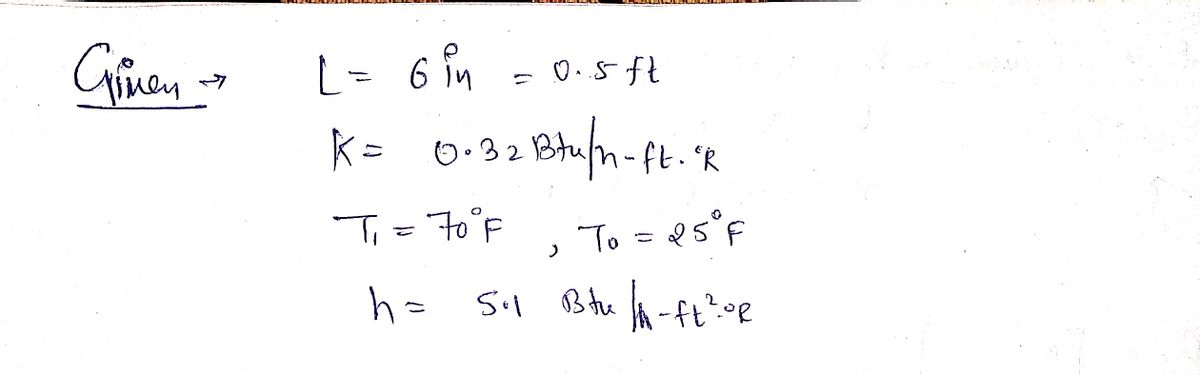 Given → L = 6 in = 0.5 ft
K = 0.32 Btu/h-ft.°R
T₁ = 70°F , T₀ = 25°F
h = 5.1 Btu/h-ft².°R